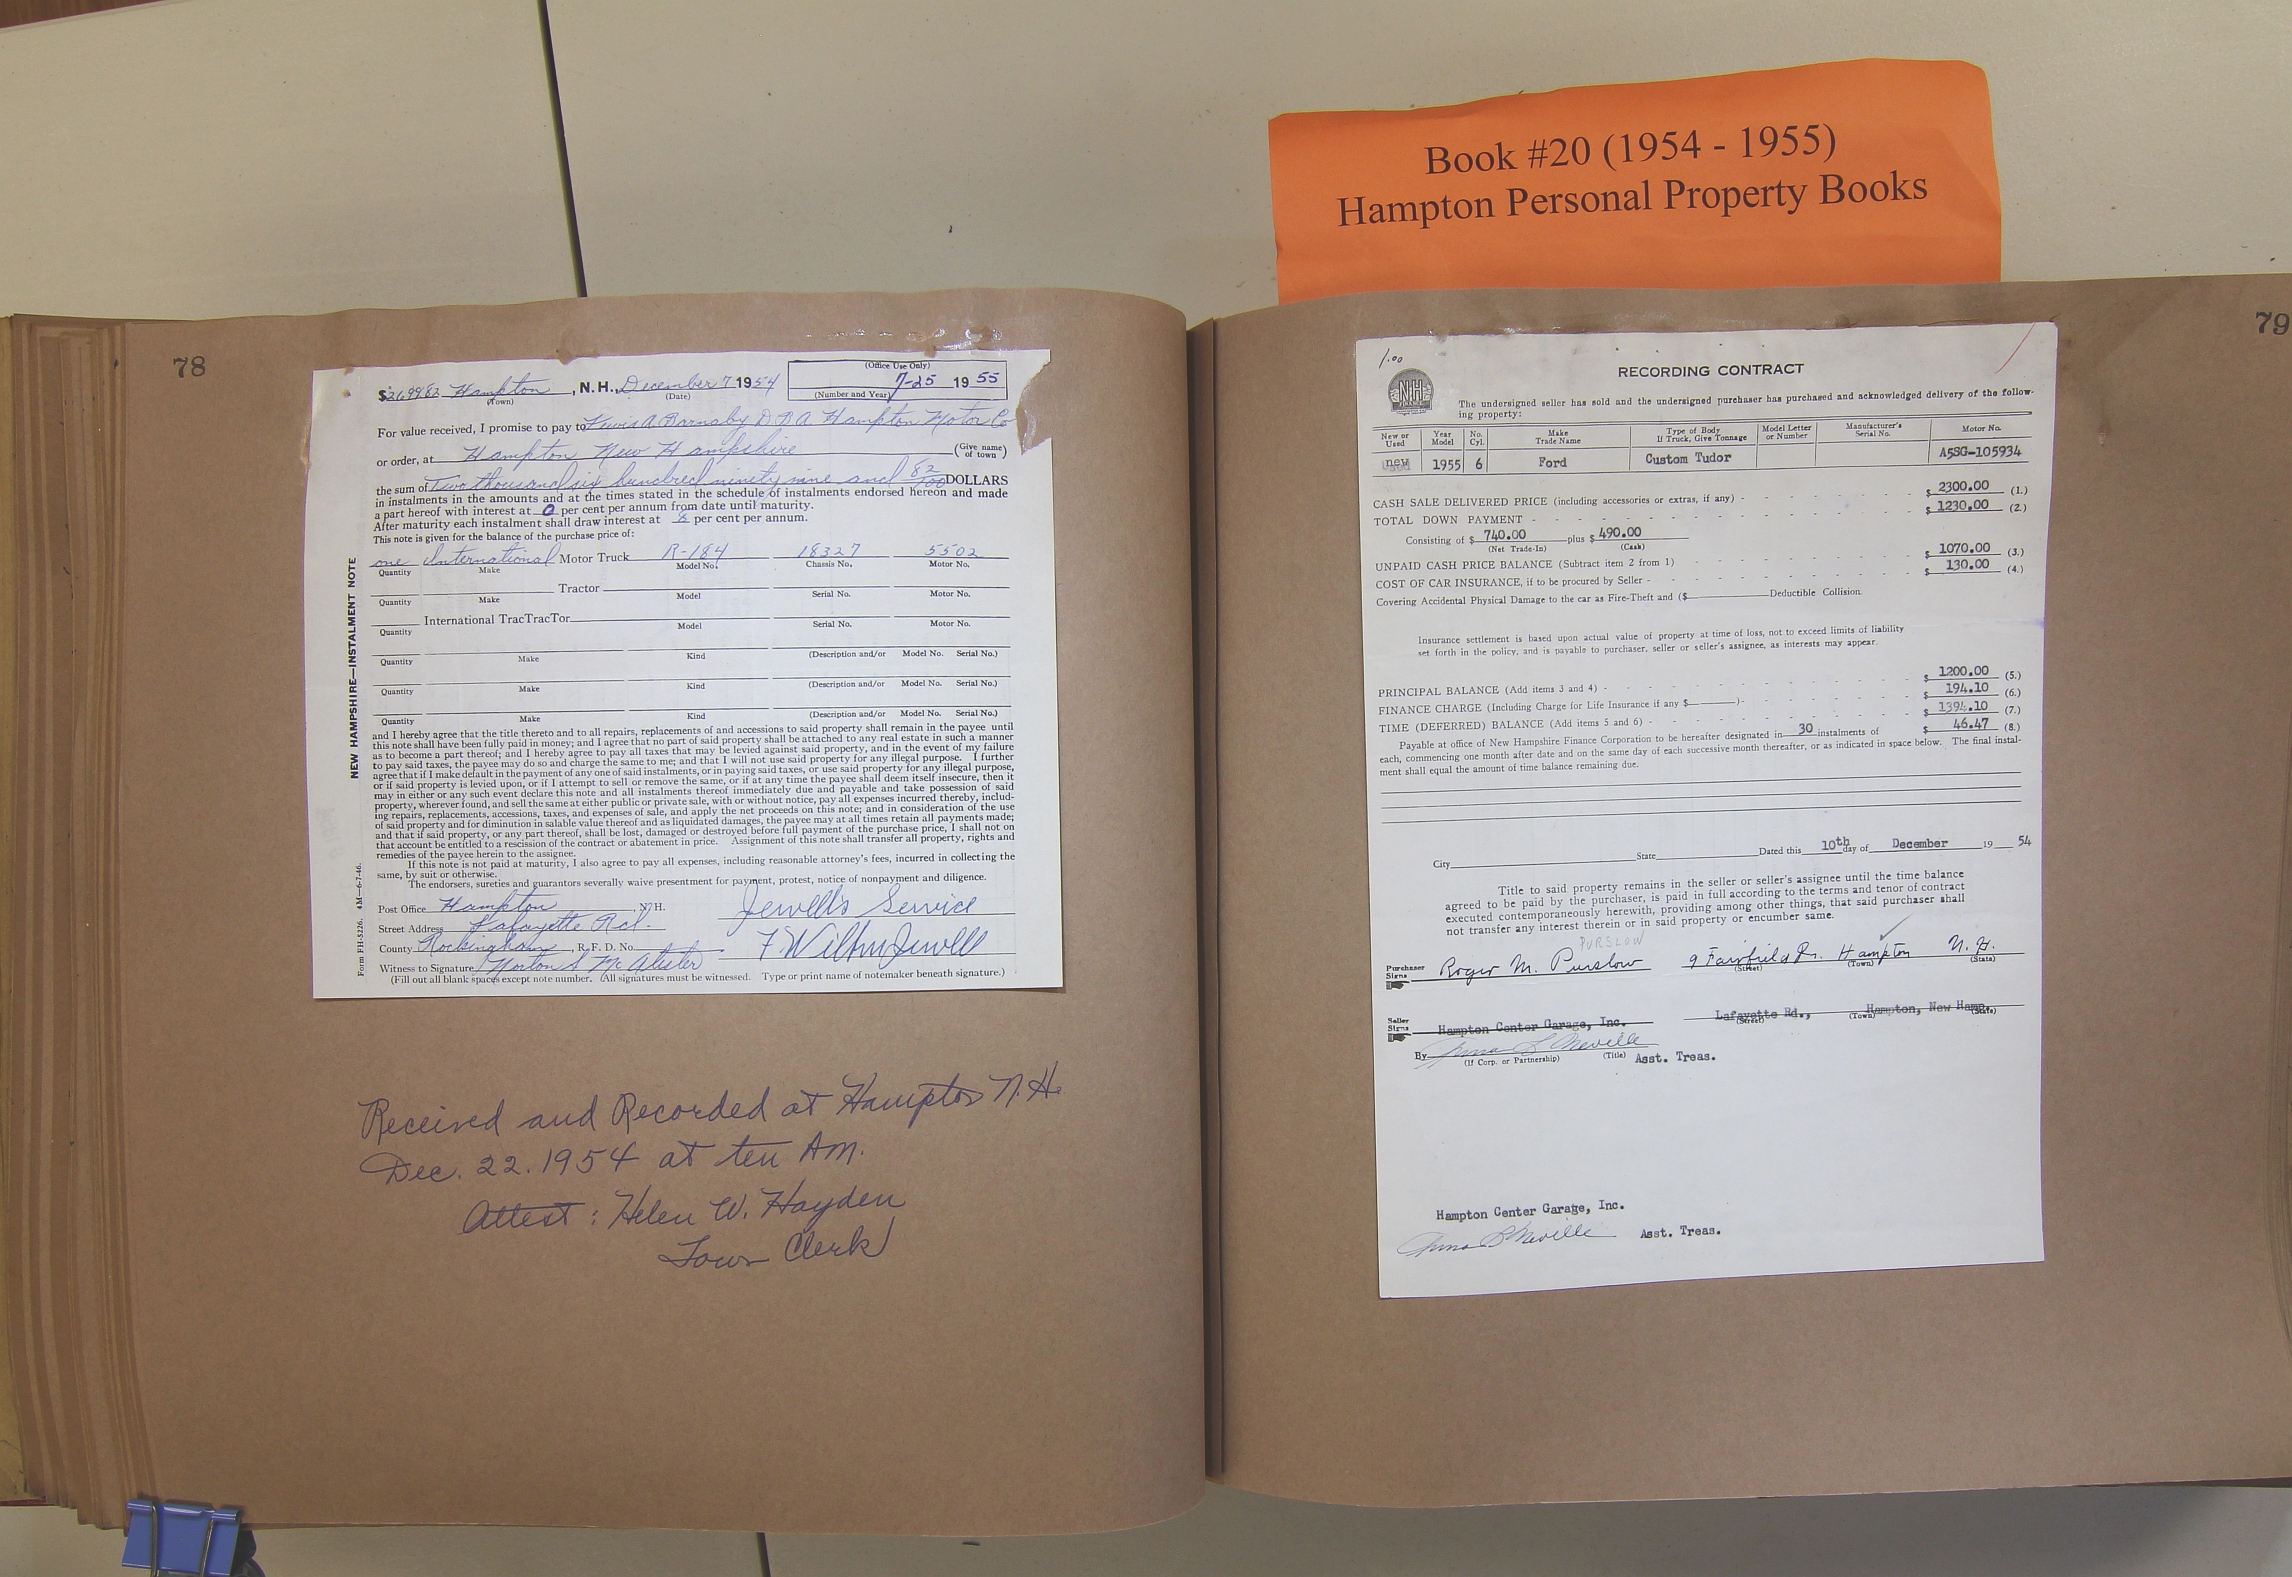 Book #20 (1954 - 1955)
Hampton Personal Property Books
78
$2699.82 Hampton, N.H., December 7 1954
(Town) (Date)
(Office Use Only)
7-25 1955
(Number and Year)
For value received, I promise to pay to Lewis A Barnaby D B A Hampton Motor Co
or order, at Hampton New Hampshire (Give name of town)
the sum of Two thousand six hundred ninety nine and 82/100 DOLLARS
in instalments in the amounts and at the times stated in the schedule of instalments endorsed hereon and made
a part hereof with interest at 0 per cent per annum from date until maturity.
After maturity each instalment shall draw interest at 8 per cent per annum.
This note is given for the balance of the purchase price of:
one International Motor Truck R-184 18327 5502
Quantity Make Model No. Chassis No. Motor No.
Tractor
Quantity Make Model Serial No. Motor No.
International TracTracTor
Quantity Model Serial No. Motor No.
Quantity Make Kind (Description and/or Model No. Serial No.)
Quantity Make Kind (Description and/or Model No. Serial No.)
Quantity Make Kind (Description and/or Model No. Serial No.)
and I hereby agree that the title thereto and to all repairs, replacements of and accessions to said property shall remain in the payee until
this note shall have been fully paid in money; and I agree that no part of said property shall be attached to any real estate in such a manner
as to become a part thereof; and I hereby agree to pay all taxes that may be levied against said property, and in the event of my failure
to pay said taxes, the payee may do so and charge the same to me; and that I will not use said property for any illegal purpose. I further
agree that if I make default in the payment of any one of said instalments, or in paying said taxes, or use said property for any illegal purpose,
or if said property is levied upon, or if I attempt to sell or remove the same, or if at any time the payee shall deem itself insecure, then it
may in either or any such event declare this note and all instalments thereof immediately due and payable and take possession of said
property, wherever found, and sell the same at either public or private sale, with or without notice, pay all expenses incurred thereby, includ-
ing repairs, replacements, accessions, taxes, and expenses of sale, and apply the net proceeds on this note; and in consideration of the use
of said property and for diminution in salable value thereof and as liquidated damages, the payee may at all times retain all payments made;
and that if said property, or any part thereof, shall be lost, damaged or destroyed before full payment of the purchase price, I shall not on
that account be entitled to a rescission of the contract or abatement in price. Assignment of this note shall transfer all property, rights and
remedies of the payee herein to the assignee.
If this note is not paid at maturity, I also agree to pay all expenses, including reasonable attorney's fees, incurred in collecting the
same, by suit or otherwise.
The endorsers, sureties and guarantors severally waive presentment for payment, protest, notice of nonpayment and diligence.
Post Office Hampton, N. H. Jewell's Service
Street Address Lafayette Rd.
County Rockingham, R. F. D. No. F Wilbur Jewell
Witness to Signature Norton S McAlister
(Fill out all blank spaces except note number. (All signatures must be witnessed. Type or print name of notemaker beneath signature.)
NEW HAMPSHIRE—INSTALMENT NOTE
Form FH-5226. 4M-6-7-46.
Received and Recorded at Hampton N.H.
Dec. 22. 1954 at ten AM.
Attest: Helen W. Hayden
Town Clerk
79
1.00
NH
RECORDING CONTRACT
The undersigned seller has sold and the undersigned purchaser has purchased and acknowledged delivery of the follow-
ing property:
New or Used Year Model No. Cyl. Make Trade Name Type of Body If Truck, Give Tonnage Model Letter or Number Manufacturer's Serial No. Motor No.
new 1955 6 Ford Custom Tudor A5SG-105934
CASH SALE DELIVERED PRICE (including accessories or extras, if any) - $ 2300.00 (1.)
TOTAL DOWN PAYMENT - $ 1230.00 (2.)
Consisting of $ 740.00 plus $ 490.00
(Net Trade-In) (Cash)
UNPAID CASH PRICE BALANCE (Subtract item 2 from 1) $ 1070.00 (3.)
COST OF CAR INSURANCE, if to be procured by Seller - $ 130.00 (4.)
Covering Accidental Physical Damage to the car as Fire-Theft and ($ Deductible Collision.
Insurance settlement is based upon actual value of property at time of loss, not to exceed limits of liability
set forth in the policy, and is payable to purchaser, seller or seller's assignee, as interests may appear.
PRINCIPAL BALANCE (Add items 3 and 4) - $ 1200.00 (5.)
FINANCE CHARGE (Including Charge for Life Insurance if any $ )- $ 194.10 (6.)
TIME (DEFERRED) BALANCE (Add items 5 and 6) - $ 1394.10 (7.)
Payable at office of New Hampshire Finance Corporation to be hereafter designated in 30 instalments of $ 46.47 (8.)
each, commencing one month after date and on the same day of each successive month thereafter, or as indicated in space below. The final instal-
ment shall equal the amount of time balance remaining due.
City State Dated this 10th day of December 19 54
Title to said property remains in the seller or seller's assignee until the time balance
agreed to be paid by the purchaser, is paid in full according to the terms and tenor of contract
executed contemporaneously herewith, providing among other things, that said purchaser shall
not transfer any interest therein or in said property or encumber same.
PURSLOW
Purchaser Signs Roger M. Purslow 9 Fairfield Dr. Hampton N. H.
(Street) (Town) (State)
Seller Signs Hampton Center Garage, Inc. Lafayette Rd., Hampton, New Hamp.
(Street) (Town) (State)
By Neville Asst. Treas.
(If Corp. or Partnership) (Title)
Hampton Center Garage, Inc.
Neville Asst. Treas.